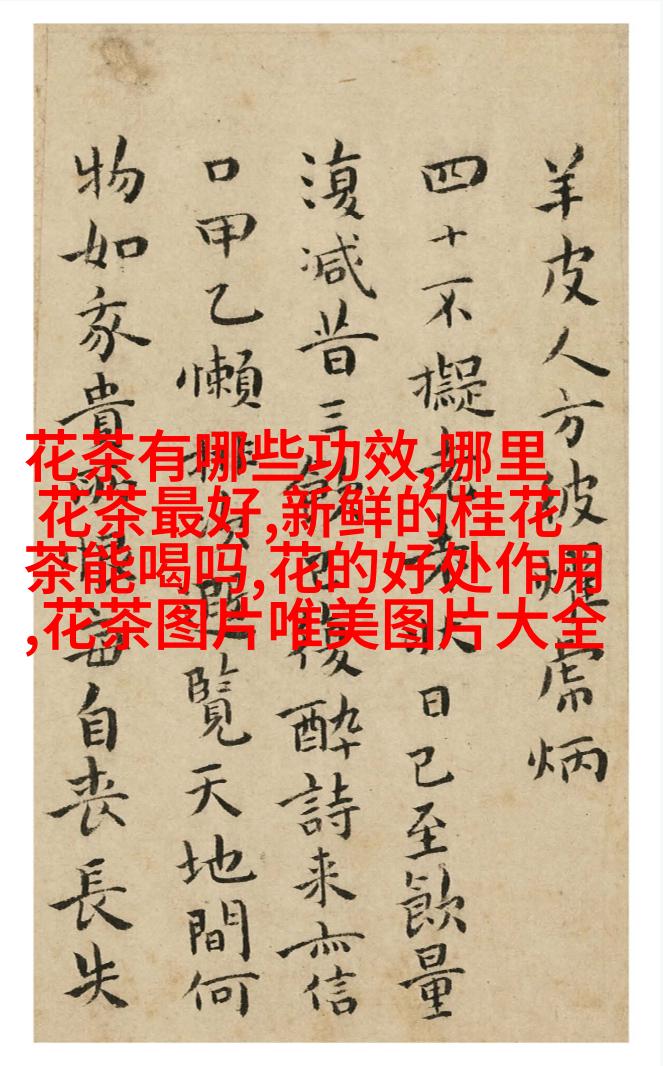 羊皮人方彼常炳
四十不擬老狀日已至飲量
復減昔三復醉詩来亦信
口甲乙懶排次退覽天地間何
物如豕貴自丧長失
花茶有哪些功效,哪里
花茶最好,新鲜的桂花
茶能喝吗,花的好处作用
,花茶图片唯美图片大全